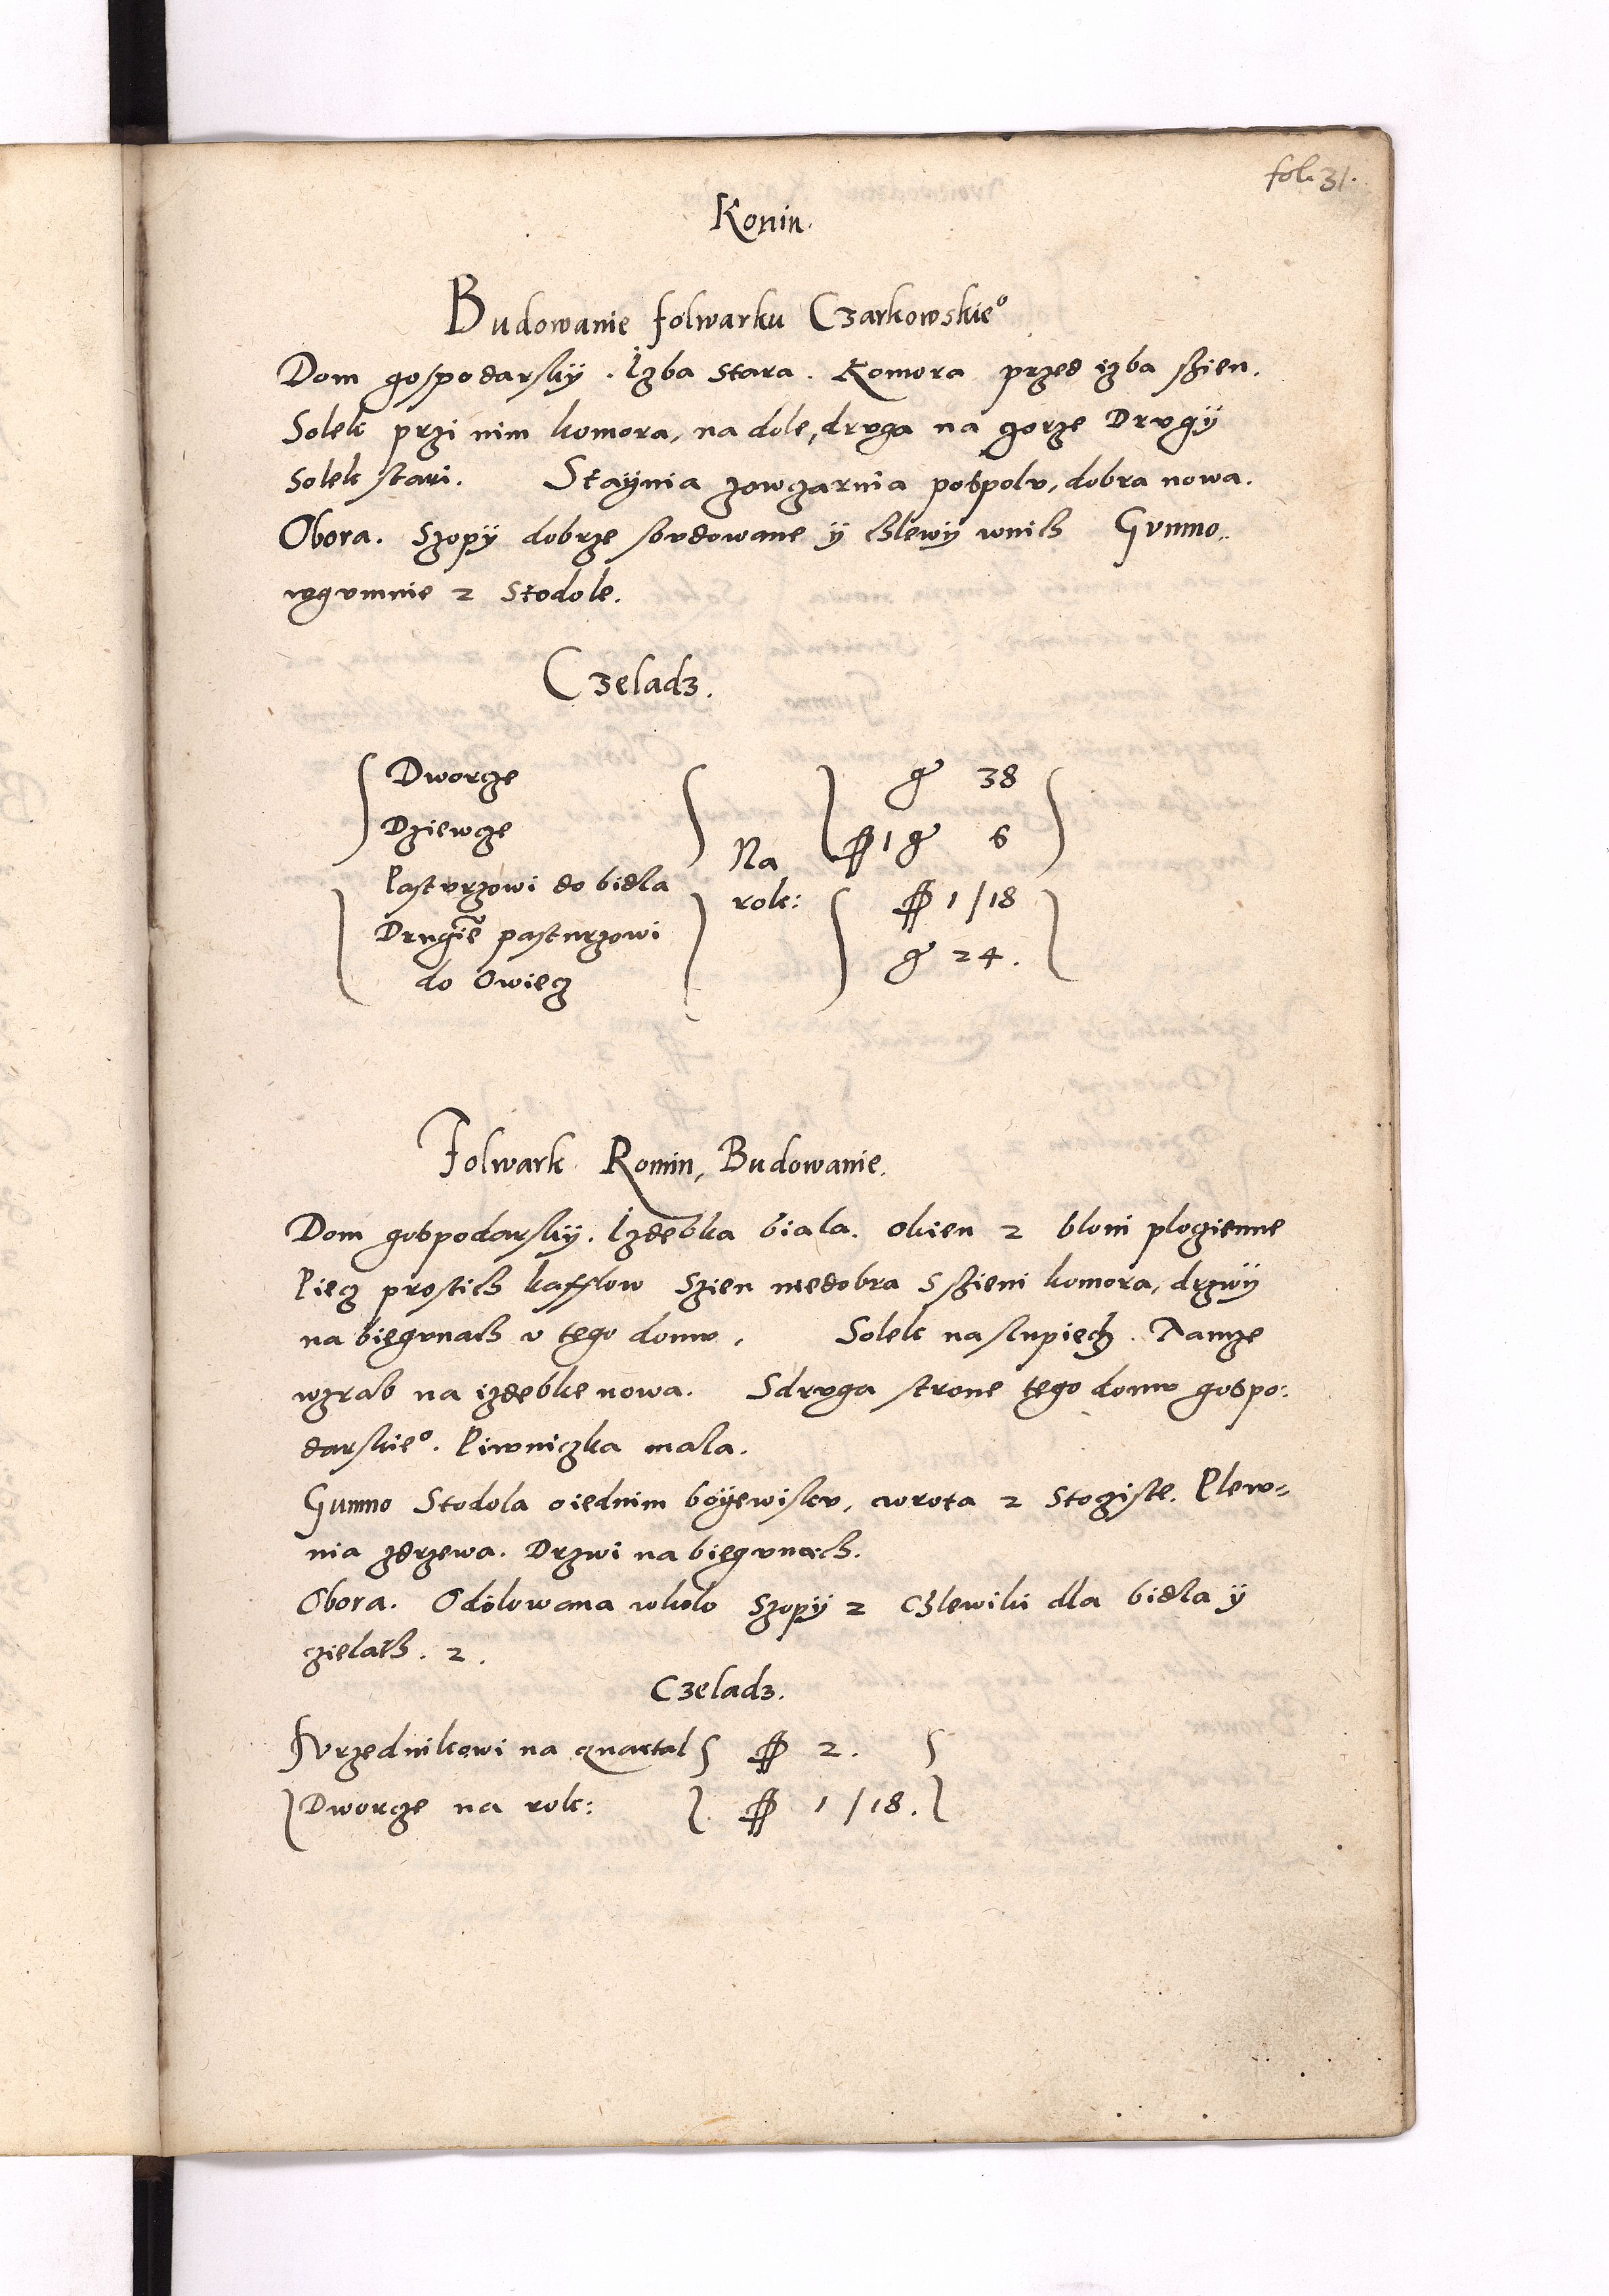 fol. 31.
Konin.
Budowanie folwarku Czarkowskieº
Dom gospodarsky. Izba stara. Komora przed izba szien.
Solek przi nim komora, na dole, druga na gorze Drvgÿ
Solek stari. Staÿnia zowczarnia pospolv, dobra nowa.
Obora. Szopÿ dobrze sbvdowane ÿ chlewÿ wnich Gvmno.
wgvmnie 2 Stodole.
Czeladz.
Dworcze g 38
Dziewcze f 1 g 6
Na
Pastvrzowi do bidla f 1 / 18
rok:
Drugiē pasturzowi g 24.
do Owiecz
Folwark Romin, Budowanie.
Dom gospodarsky. Izdebka biala. Okien 2 bloni plozienne
Piecz prostich kafflow Szien niedobra S szieni komora, drzwÿ
na biegvnach v tego domv. Solek na slupiech. Tamze
wzrab na izdebke nowa. Sdrvga strone tego domv gospo:
darskieº. Piwniczka mala.
Gumno Stodola oiednim boÿewiskv, wrota 2 Stoziste. Plew=
nia zdrzewa. Drzwi na biegvnach.
Obora. Odilowana wkolo Szopÿ 2 Chlewiki dla bidla ÿ
czielath. 2.
Czeladz.
Vrzednikowi na quartal f 2.
Dworcze na rok: f 1 / 18.